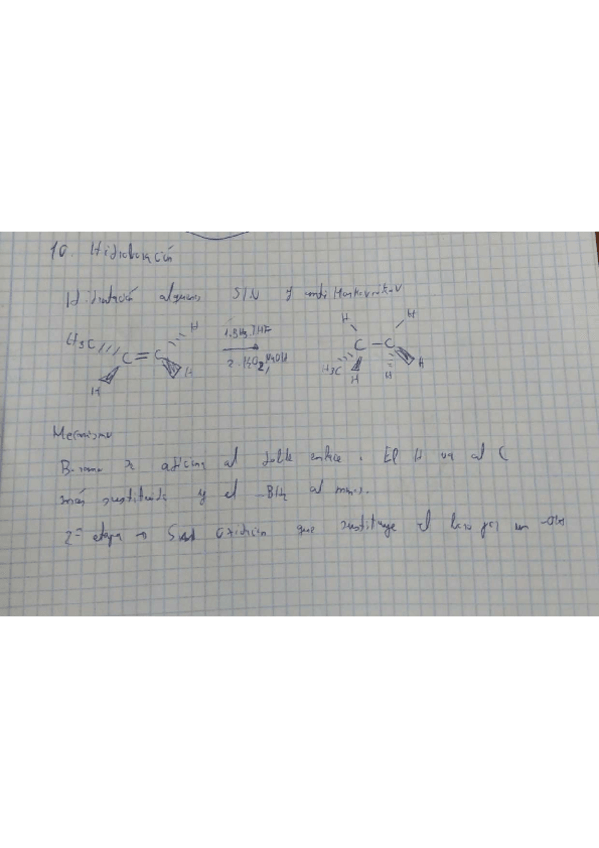 10. Hidroboración
Hidratación alquenos SIN y anti Markovnikov
H₃C H H H
C=C 1. BH₃, THF C-C
H H 2. H₂O₂, NaOH H₃C H H H
Mecanismo
Borano se adiciona al doble enlace. El H va al C
más sustituido y el -BH₂ al menos.
2ª etapa → oxidación que sustituye el boro por un -OH